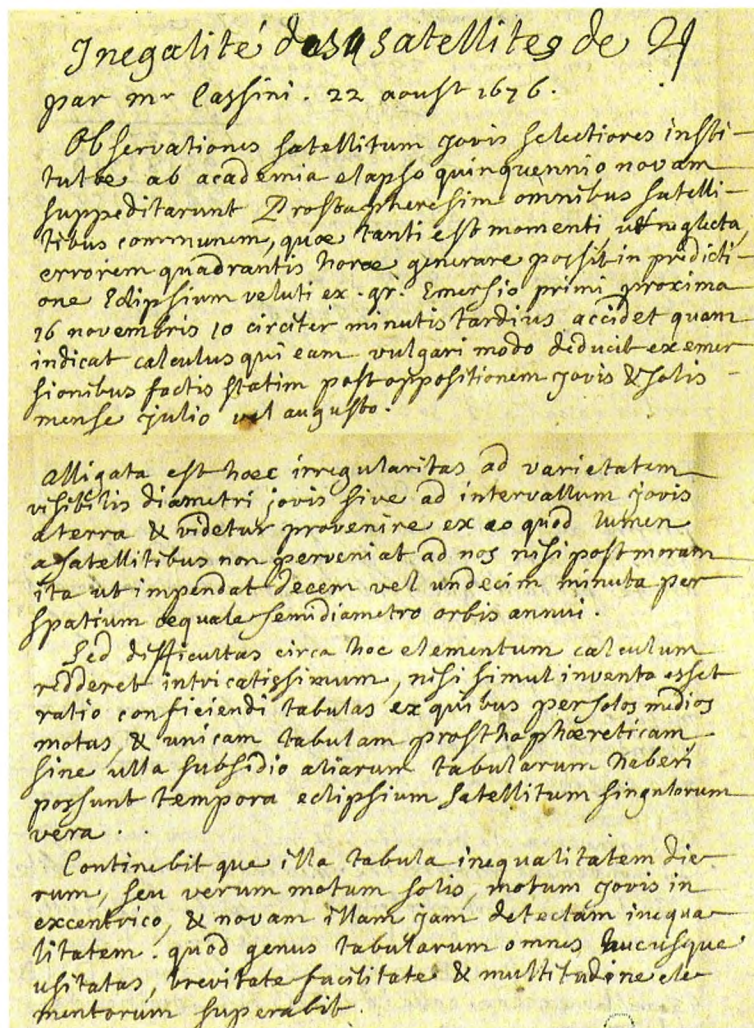 Inegalité des 4 satellites de ♃
par mr Cassini . 22 aoust 1676 .
Observationes satellitum Jovis selectiores insti-
tutae ab academia elapso quinquennio novam
suppeditarunt Prostapheresim omnibus satelli-
tibus communem, quae tanti est momenti, ut neglecta,
errorem quadrantis horae generare possit in predicti-
one Eclipsium veluti ex . gr. Emersio primi proxima
16 novembris 10 circiter minutis tardius accidet quam
indicat calculus qui eam vulgari modo deducit ex emer
sionibus factis statim post oppositionem jovis & solis -
mense julio vel augusto .
alligata est haec irregularitas ad varietatem
visibilis diametri jovis sive ad intervallum jovis
a terra & videtur provenire ex eo quod lumen
a satellitibus non perveniat ad nos nisi post moram
ita ut impendat decem vel undecim minuta per
spatium aequale semidiametro orbis annui .
Sed difficultas circa hoc elementum calculum
redderet intricatissimum, nisi simul inventa esset
ratio conficiendi tabulas ex quibus per solos medios
motus, & unicam tabulam prosthaphaereticam
sine ulla subsidio aliarum tabularum haberi
possunt tempora eclipsium satellitum singulorum
vera . .
Continebit que illa tabula inequalitatem die-
rum, seu verum motum solis, motum jovis in
excentrico, & novam illam jam detectam inequa-
litatem . quod genus tabularum omnes hucusque
usitatas, brevitate facilitate & multitudine ele-
mentorum superabit .